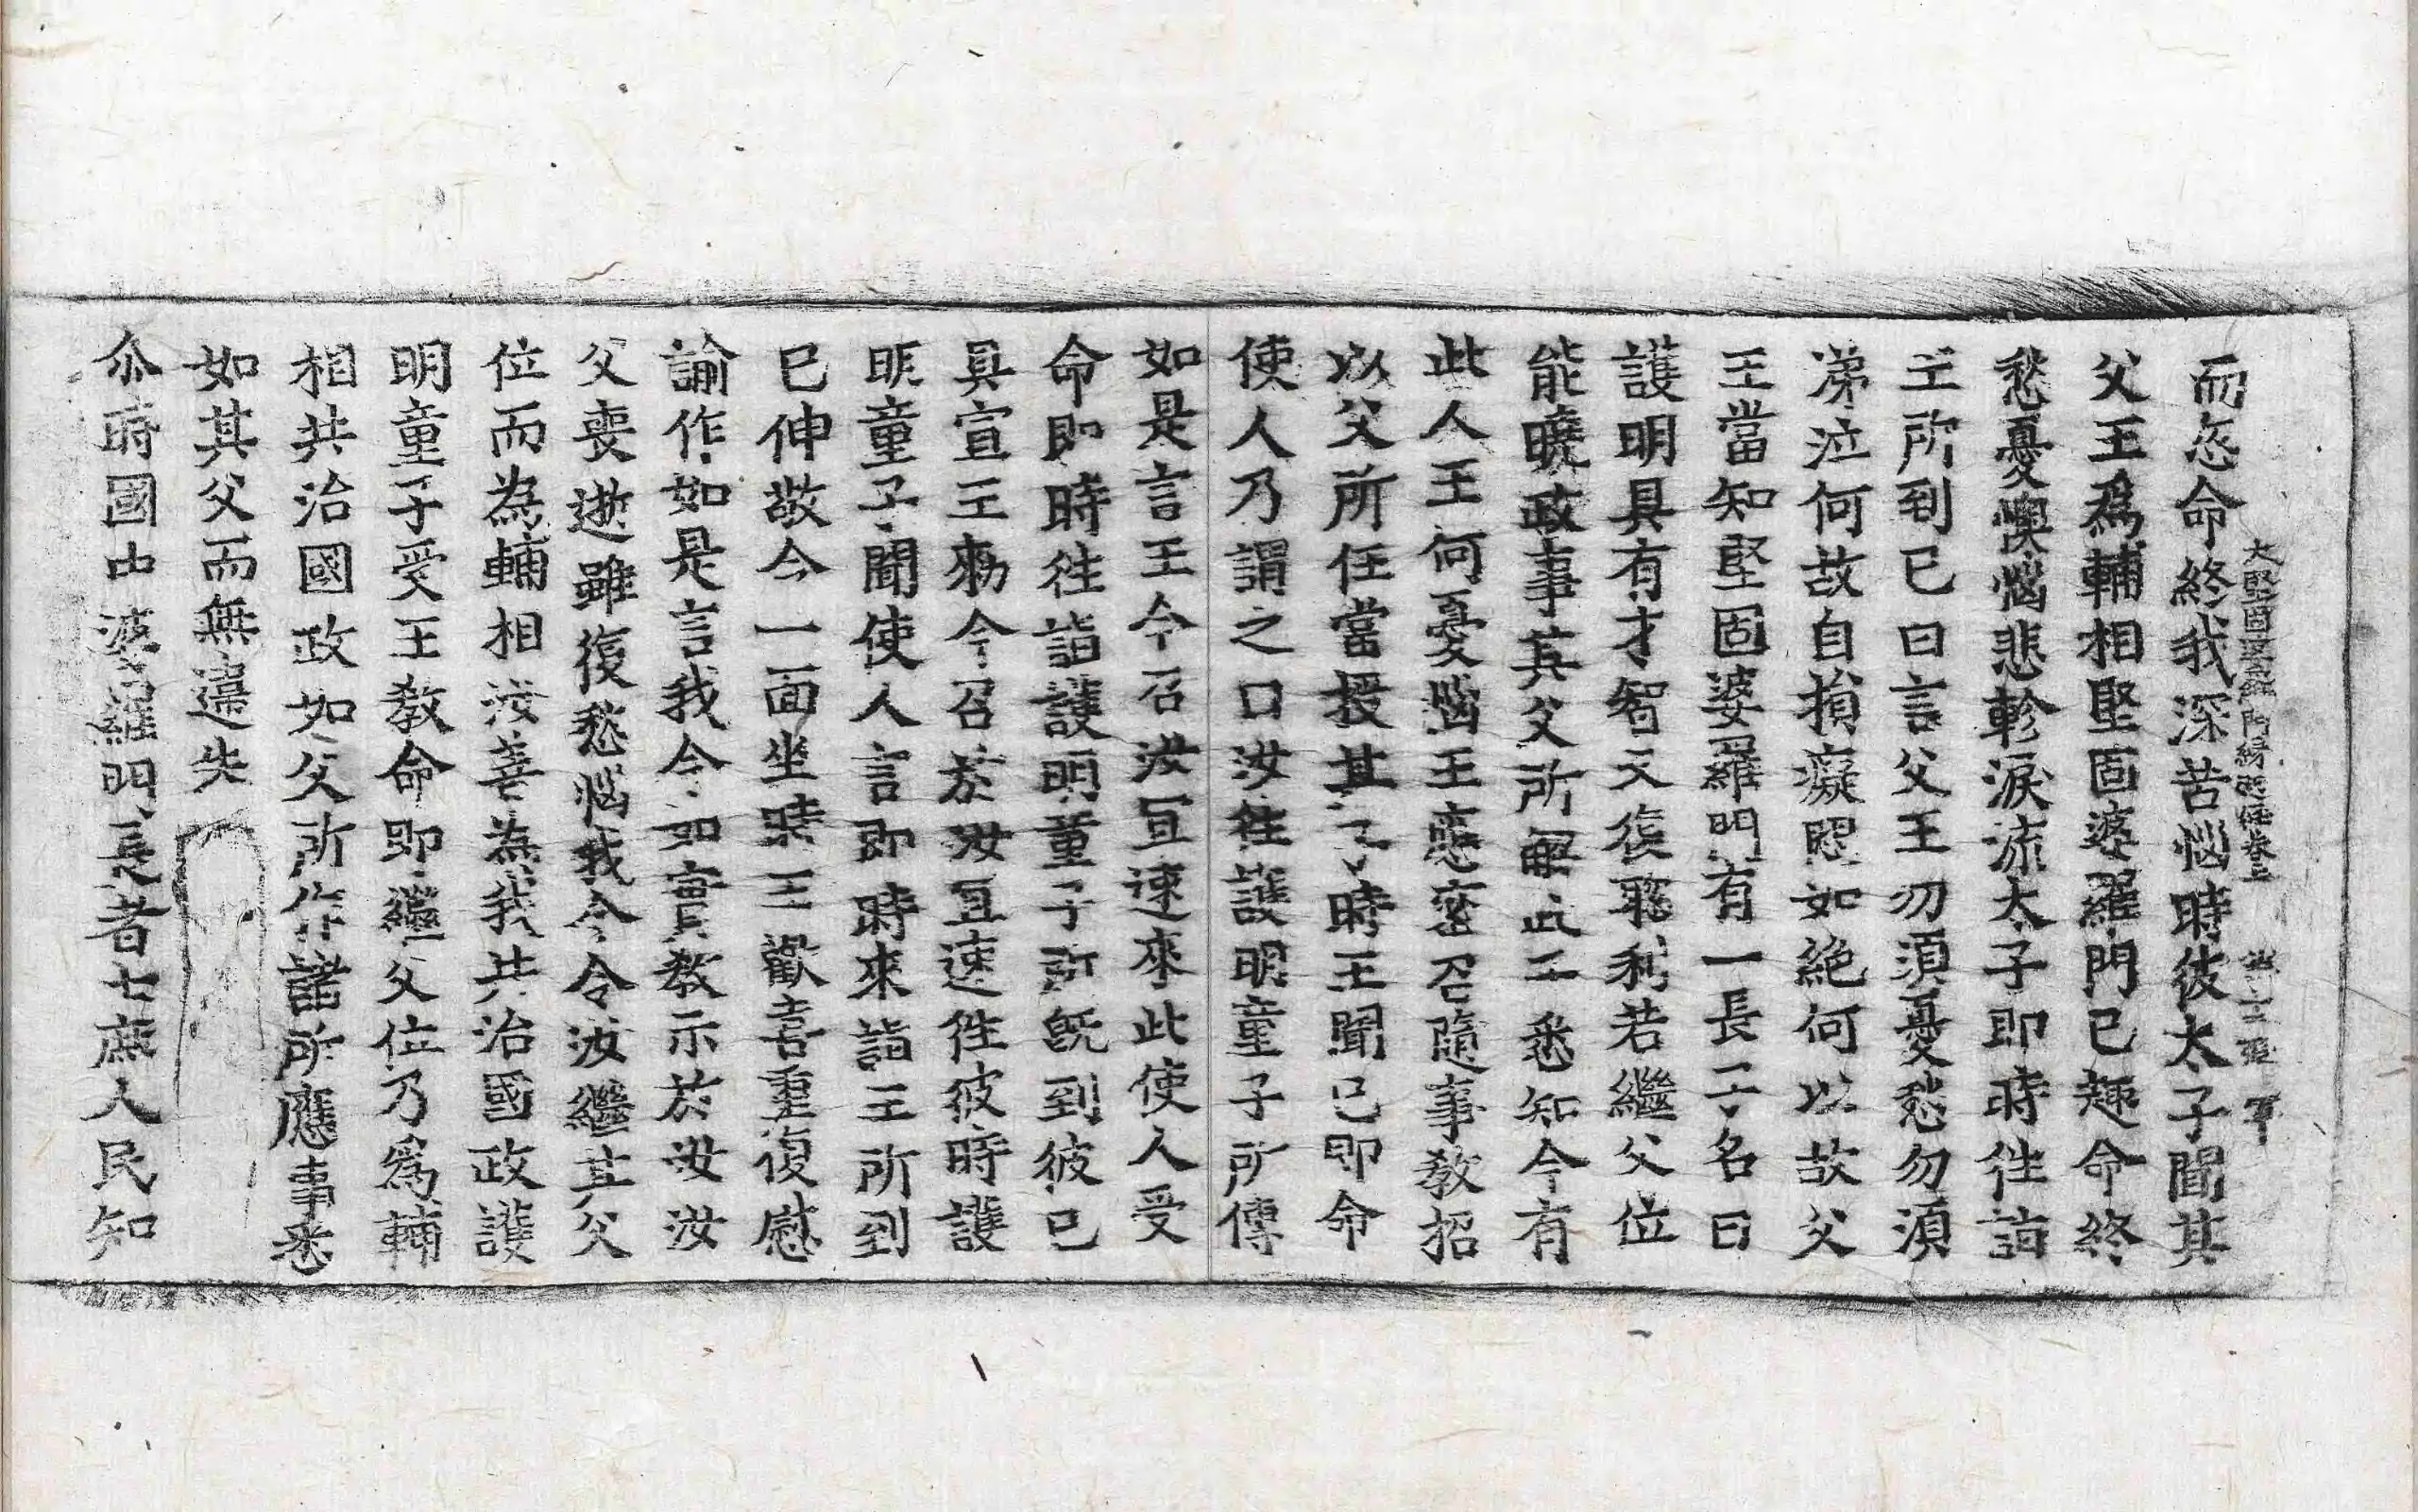 而忽命終我深苦惱時彼太子聞其
大堅固婆羅門緣起經卷上
父王爲輔相堅固婆羅門已趣命終
愁憂懊惱悲軫淚流太子即時往詣
王所到已白言父王勿須憂愁勿須
涕泣何故自損癡悶如絕何以故父
王當知堅固婆羅門有一長子名曰
護明具有才智又復聡利若繼父位
能曉政事其父所解此子悉知今有
此人王何憂惱王應密召隨事教招
以父所任當授其子時王聞已即命
使人乃謂之曰汝往護明童子所傳
如是言王今召汝宜速來此使人受
命即時往詣護明童子所旣到彼已
具宣王勑今召於汝宜速往彼時護
明童子聞使人言即時來詣王所到
已伸敬令一面坐時王歡喜重復慰
諭作如是言我今如實教示於汝汝
父喪逝雖復愁惱我今令汝繼其父
位而為輔相汝善為我共治國政護
明童子受王教命即繼父位乃爲輔
相共治國政如父所作諸所應事悉
如其父而無違失
尒時國中婆羅門長者士庶人民知